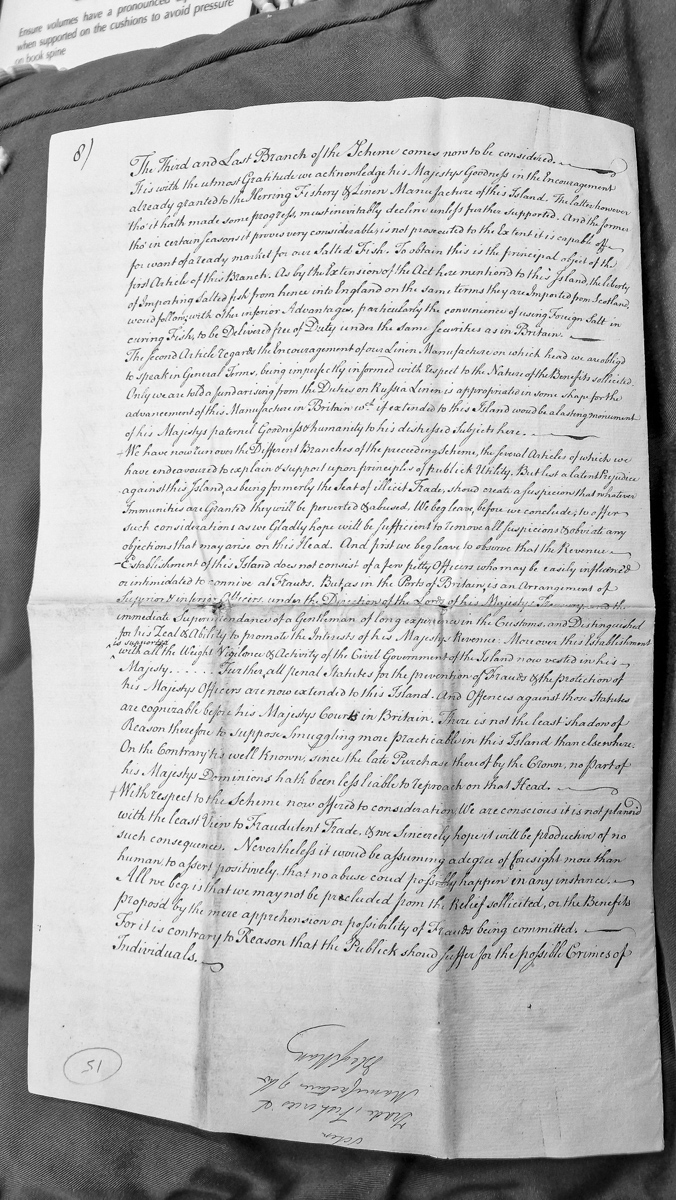 Ensure volumes have a pronounced
when supported on the cushions to avoid pressure
on book spine
8)
The Third and Last Branch of the Scheme comes now to be considered.
It is with the utmost Gratitude we acknowledge his Majestys Goodness in the Encouragement
already granted to the Herring Fishery & Linen Manufacture of this Island. The latter however
tho' it hath made some progress, must inevitably decline unless further Supported. And the former
tho' in certain seasons it proves very considerable is not prosecuted to the Extent it is capable off
for want of a ready market for our Salted Fish. To obtain this is the principal object of the
first Article of this Branch. As by the Extension of the Act here mention'd to this Island, the liberty
of Importing Salted fish from hence into England on the same terms they are Imported from Scotland,
woud follow, with other inferior Advantages, particularly the convenience of using Foreign Salt in
curing Fish, to be Deliver'd free of Duty under the same securities as in Britain.
The second Article regards the Encouragement of our Linen Manufacture on which head we are obliged
to speak in General Terms, being imperfectly informed with respect to the Nature of the Benefits sollicited.
Only we are told a fund arising from the Duties on Russia Linen is appropriated in some shape for the
advancement of this Manufacture in Britain wch. if extended to this Island woud be a lasting monument
of his Majestys paternal Goodness & humanity to his distressed Subjects here.
We have now run over the Different Branches of the preceeding Scheme, the several Articles of which we
have endeavoured to explain & support upon principles of publick Utility. But lest a latent Prejudice
against this Island, as being formerly the Seat of illicit Trade, shoud create a Suspicion that whatever
Immunities are Granted they will be perverted & abused. We beg leave, before we conclude, to offer
such considerations as we Gladly hope will be sufficient to remove all suspicions & obviate any
objections that may arise on this Head. And first we beg leave to observe that the Revenue
Establishment of this Island does not consist of a few petty Officers who may be easily influenced
or intimidated to connive at Frauds. But as in the Ports of Britain, is an Arrangement of
Superior & inferior Officers, under the Direction of the Lords of his Majestys Treasury and the
immediate Superintendance of a Gentleman of long experience in the Customs, and Distinguished
for his Zeal & Ability to promote the Interests of his Majestys Revenue. Moreover this Establishment
is supported
with all the Weight Vigilence & Activity of the Civil Government of the Island now vested in his
Majesty...... Further, all penal Statutes for the prevention of Frauds & the protection of
his Majestys Officers are now extended to this Island. And Offences against those Statutes
are cognizable before his Majestys Courts in Britain. There is not the least shadow of
Reason therefore to suppose Smuggling more practicable in this Island than elsewhere.
On the Contrary 'tis well known, since the late Purchase thereof by the Crown, no part of
his Majestys Dominions hath been less liable to reproach on that Head.
With respect to the Scheme now offered to consideration, We are conscious it is not plann'd
with the least View to Fraudulent Trade, & we Sincerely hope it will be productive of no
such consequences. Nevertheless it woud be assuming a degree of foresight more than
human, to assert positively, that no abuse coud possibly happen in any instance.
All we beg is that we may not be precluded from the Relief sollicited, or the Benefits
propos'd by the mere apprehension or possibility of Frauds being committed.
For it is contrary to Reason that the Publick shoud suffer for the possible Crimes of
Individuals.
15
Trade, Fisheries &
Manufacture of the
Isle of Man